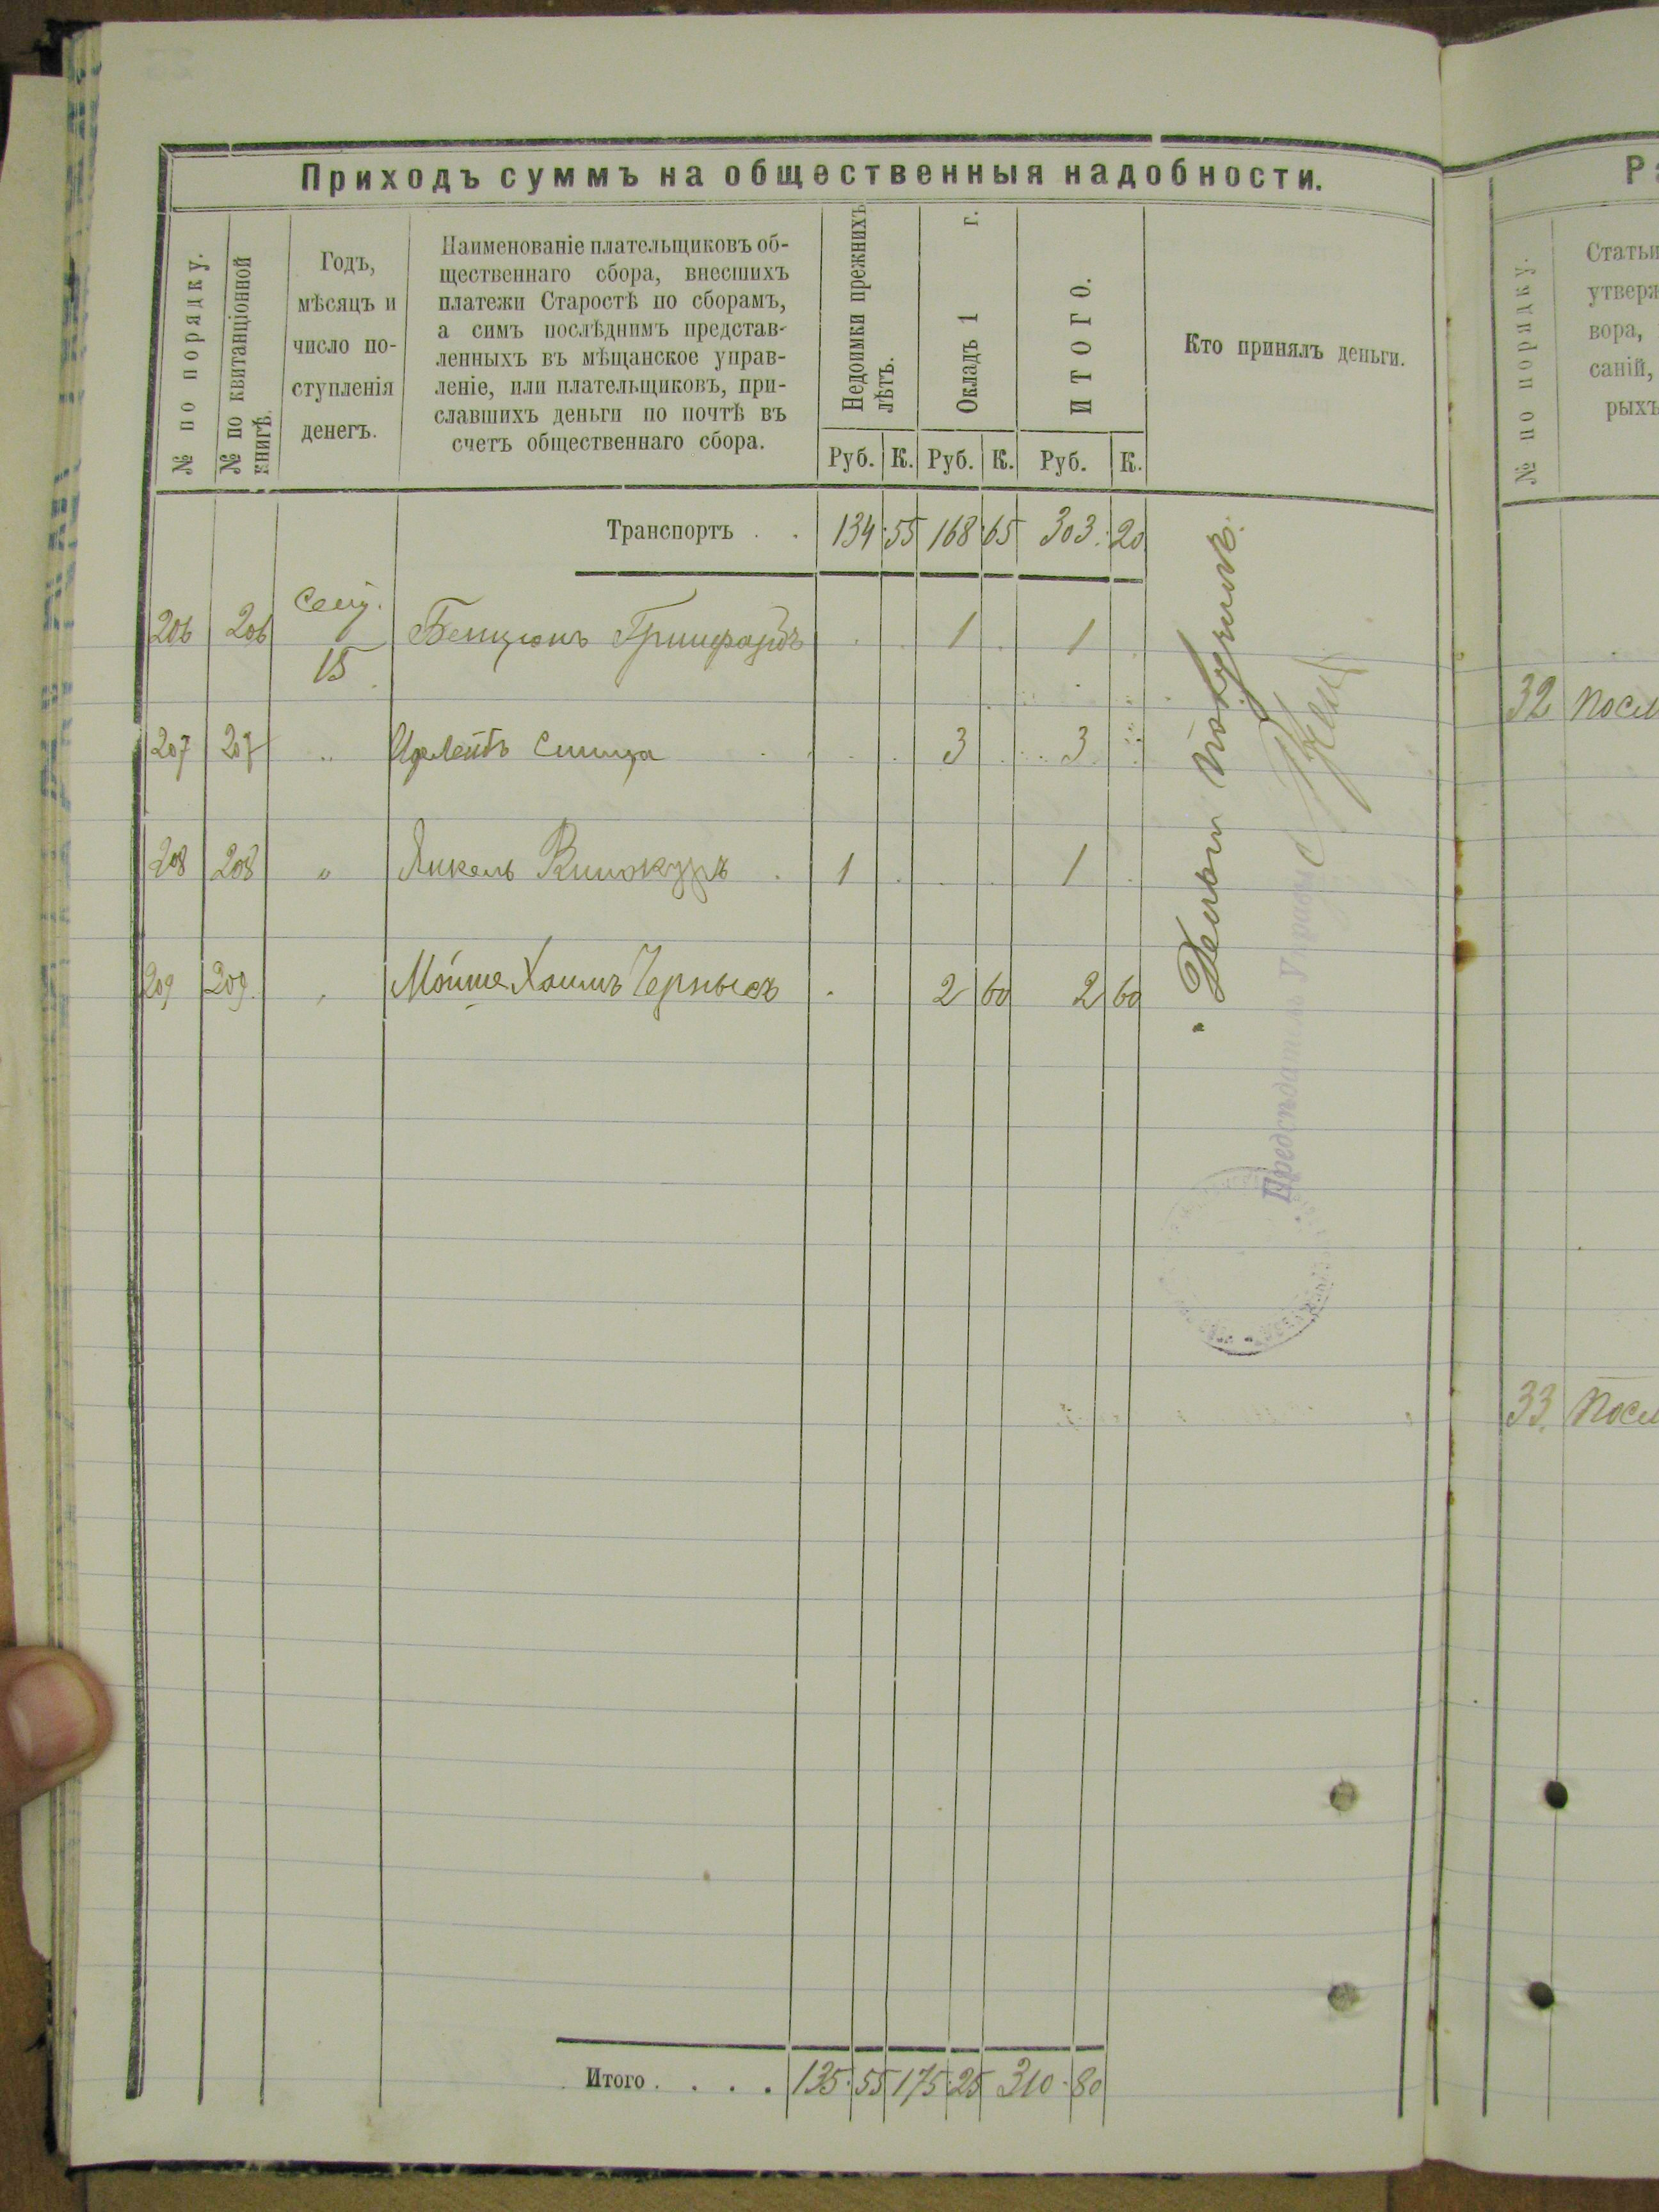 Приходъ суммъ на общественныя надобности.
№ по порядку.
№ по квитанціонной
книгѣ.
Годъ,
мѣсяцъ и
число по-
ступленія
денегъ.
Наименованіе плательщиковъ об-
щественнаго сбора, внесшихъ
платежи Старостѣ по сборамъ,
а симъ послѣднимъ представ-
ленныхъ въ мѣщанское управ-
леніе, или плательщиковъ, при-
славшихъ деньги по почтѣ въ
счетъ общественнаго сбора.
Недоимки прежнихъ
лѣтъ.
Окладъ 1 г.
ИТОГО.
Кто принялъ деньги.
Руб. К. Руб. К. Руб. К.
Транспортъ . . 134 55 168 65 303 20
206 206 15 Бенціонъ 1 1
207 207 " Спица 3 3
208 208 " Янкель Винокуръ 1 1
209 209 " Мойше Хаимъ Чернысъ 2 60 2 60
Деньги получилъ.
Предсѣдатель Управы
Итого . . . . 135 55 175 25 310 80
Ра
№ по порядку.
Статьи
утверж
вора,
саній,
рыхъ
32 Посл
33. Посл